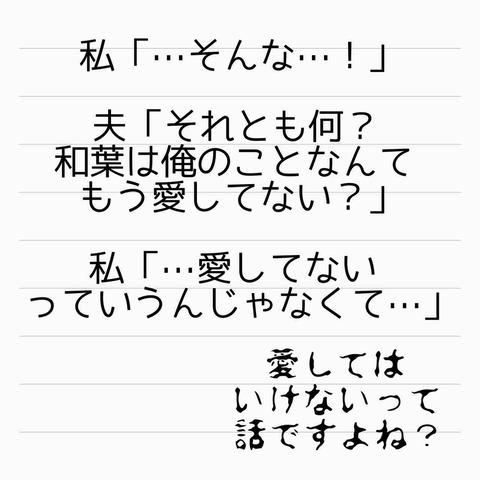 私「…そんな…！」
夫「それとも何？
和葉は俺のことなんて
もう愛してない？」
私「…愛してない
っていうんじゃなくて…」
愛しては
いけないって
話ですよね？